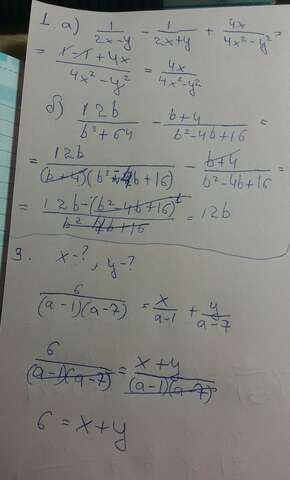 1. a) 1/(2x-y) - 1/(2x+y) + 4x/(4x²-y²) =
= (1-1+4x)/(4x²-y²) = 4x/(4x²-y²)
б) 12b/(b³+64) - (b+4)/(b²-4b+16) =
= 12b/((b+4)(b²-4b+16)) - (b+4)/(b²-4b+16) =
= (12b-(b²-4b+16))/(b²-4b+16) = 12b
3. x-?, y-?
6/((a-1)(a-7)) = x/(a-1) + y/(a-7)
6/((a-1)(a-7)) = (x+y)/((a-1)(a-7))
6 = x+y